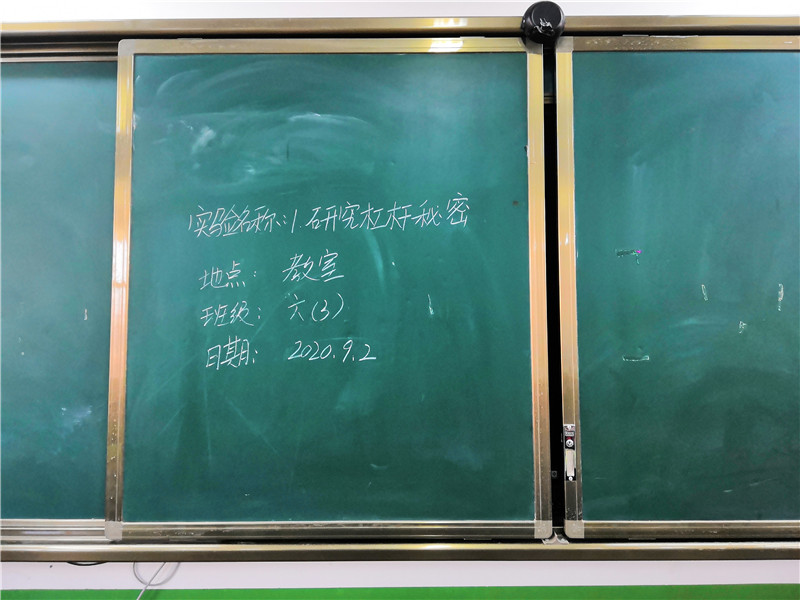 实验名称:1.研究杠杆秘密
地点: 教室
班级: 六(3)
日期: 2020.9.2